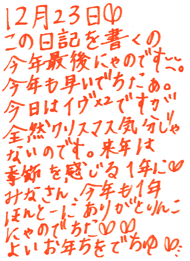 12月23日♡
この日記を書くの
今年最後にゃのです〜。
今年も早いでちたぁ。
今日はイヴ×2ですが
全然クリスマス気分じゃ
ないのです。来年は
季節を感じる1年に♡
みなさん、今年も1年
ほんとーに ありがとりんこ
にゃのでちた♡♡
よいお年ちをでちゅ♡♡